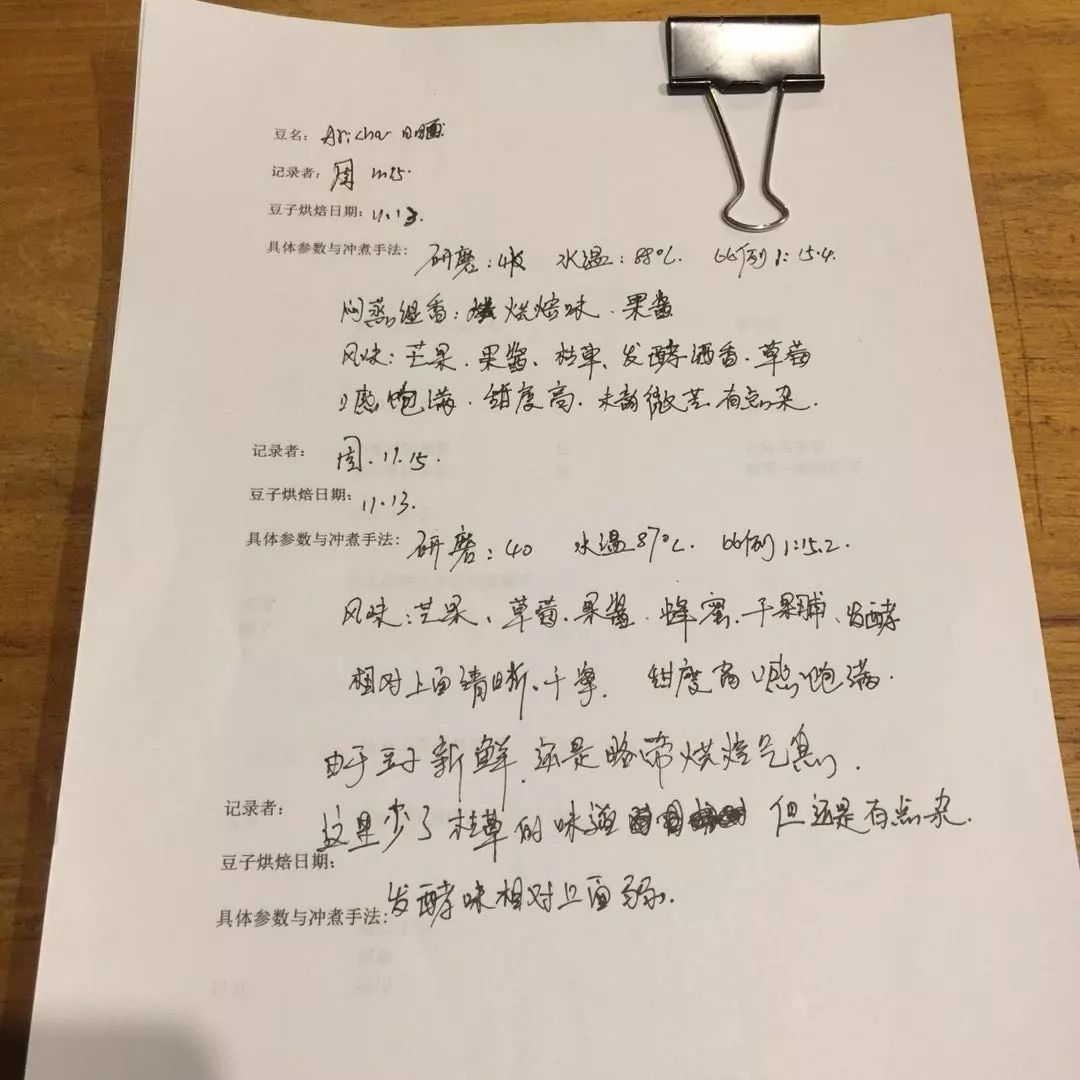 豆名：Aricha 日晒
记录者：周 11.15.
豆子烘焙日期：11.13.
具体参数与冲煮手法：研磨： 水温：88℃. 比例 1:15.4.
闷蒸湿香： 烘焙味、果酱
风味：芒果、果酱、桂草、发酵酒香、草莓
口感饱满、甜度高、末端微苦有点杂.
记录者：周.11.15.
豆子烘焙日期：11.13.
具体参数与冲煮手法：研磨：40 水温87℃. 比例1:15.2.
风味：芒果、草莓、果酱、蜂蜜、干果脯、发酵
相对上面清晰、干净. 甜度高口感饱满.
由于豆子新鲜.还是略带烘焙气息.
记录者：
这里少了桂草的味道 但还是有点杂.
豆子烘焙日期：
发酵味相对上面弱.
具体参数与冲煮手法：